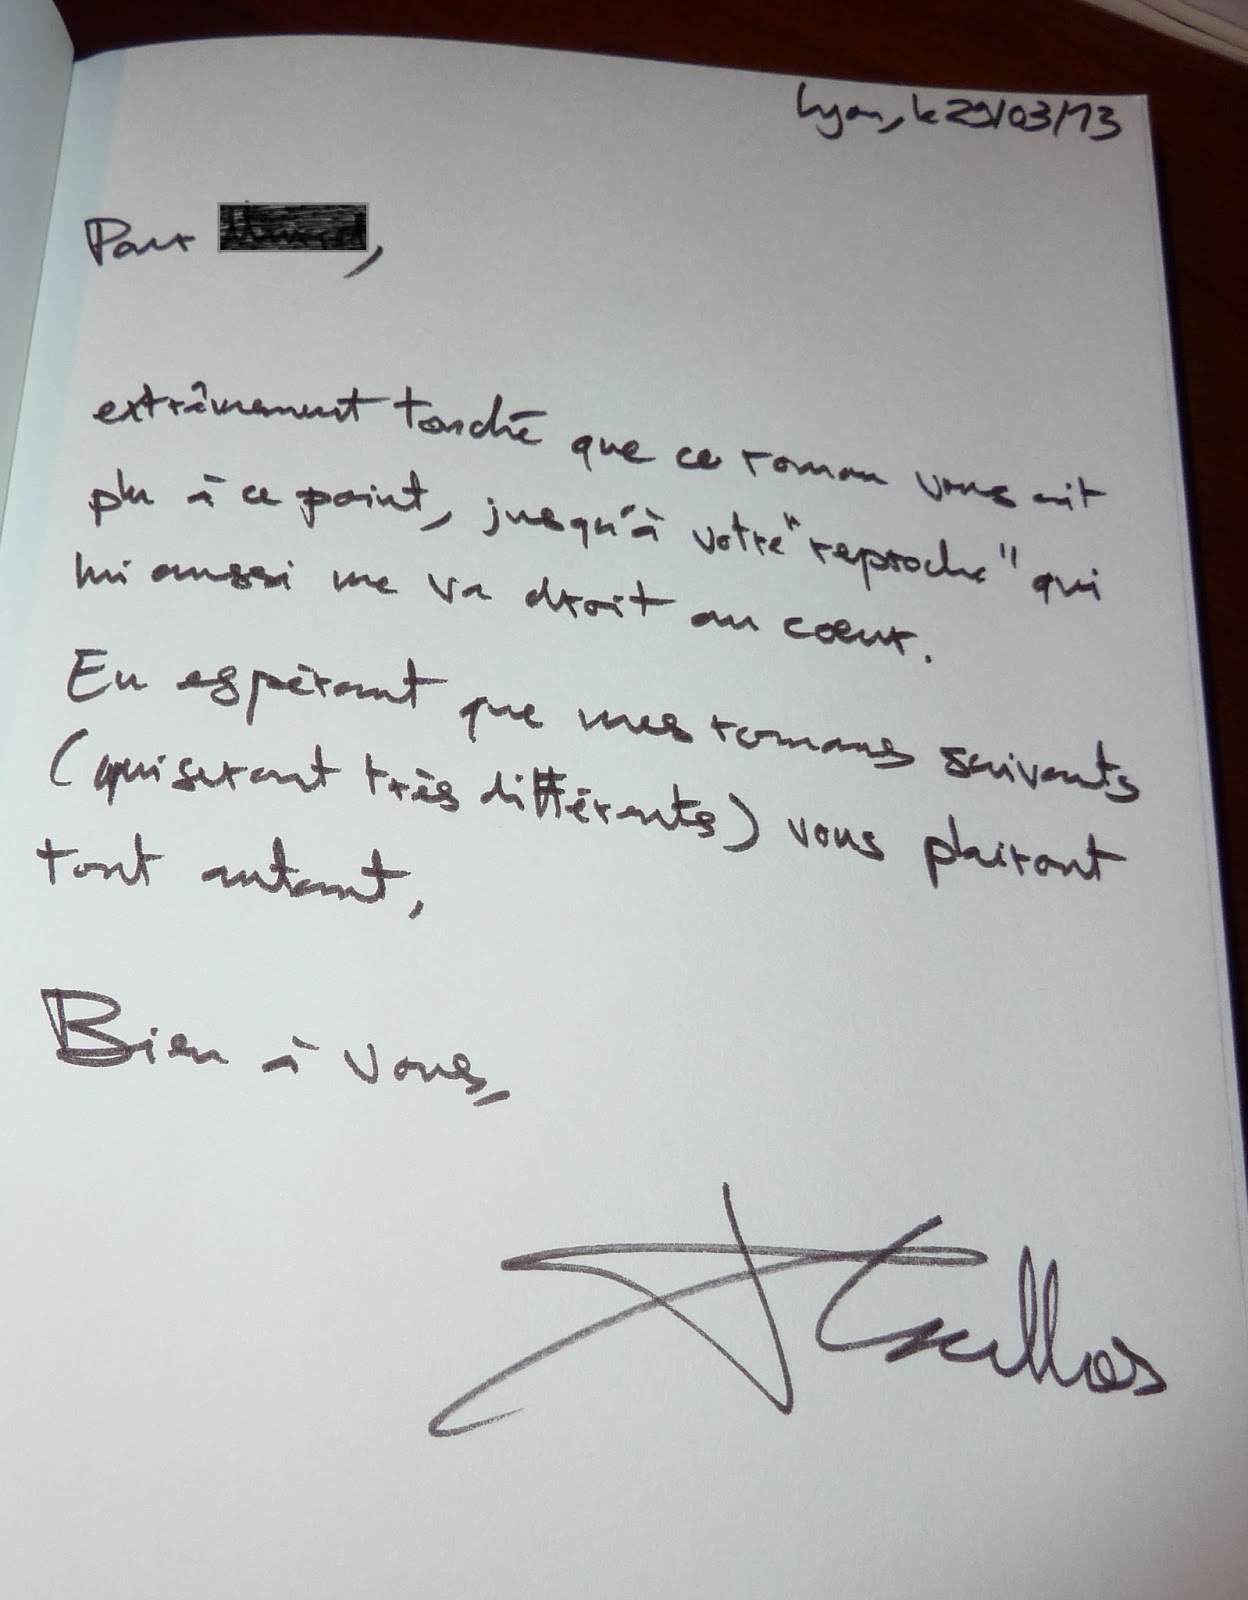 Lyon, le 29/03/13
Pour ,
extrêmement touché que ce roman vous ait
plu à ce point, jusqu'à votre "reproche" qui
lui aussi me va droit au cœur.
En espérant que mes romans suivants
(qui seront très différents) vous plairont
tout autant,
Bien à vous,